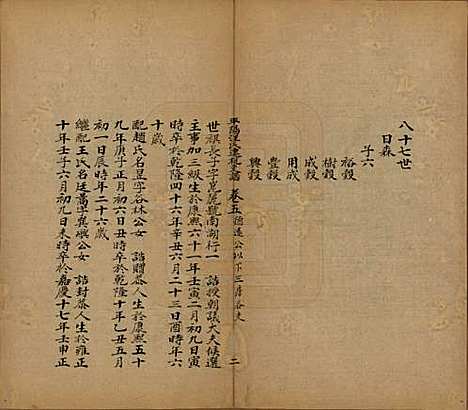 八十七世
日森
子六
裕穀
樹穀
成穀
用成
豊穀
興穀
平陽汪氏遷杭支譜 卷五 公以下三房各支 二
世禎長子字
麗號南湖行一 誥授朝議大夫候選
主事加三級生於康熙六十一年壬寅二月初九日寅
時卒於乾隆四十六年辛丑六月二十三日酉時年六
十歲
配趙氏名
字谷林公女 誥贈恭人生於康熙五十
九年庚子正月初六日丑時卒於乾隆十年乙丑五月
初一日辰時年二十六歲
繼配王氏名
字
公女 誥封恭人生於雍正
十年壬子六月初九日未時卒於嘉慶十七年壬申正